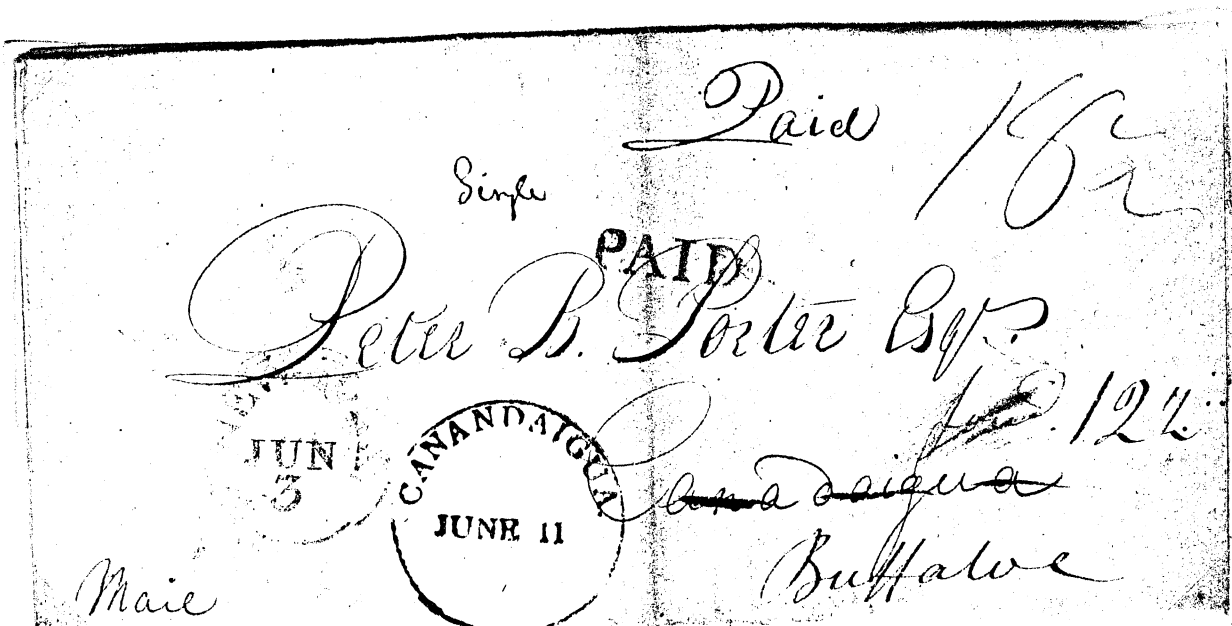 Paid
Single
PAID
Peter B. Porter Esqr.
122
JUN
3
CANANDAIGUA
JUNE 11
Canadaigua
Buffaloe
Mail